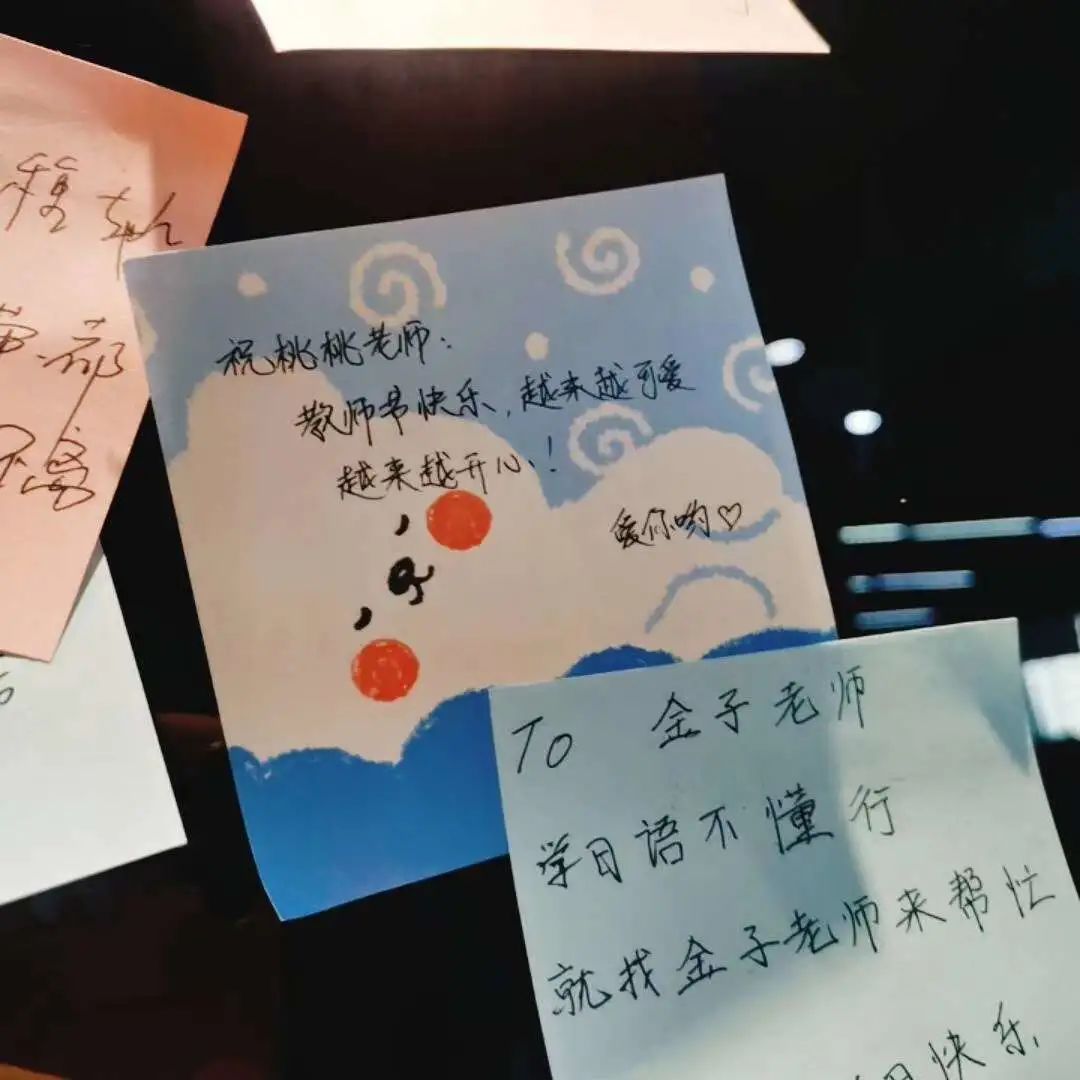 祝桃桃老师：
教师节快乐，越来越可爱
越来越开心！
爱你哟♡
To 金子老师
学日语不懂行
就找金子老师来帮忙
快乐